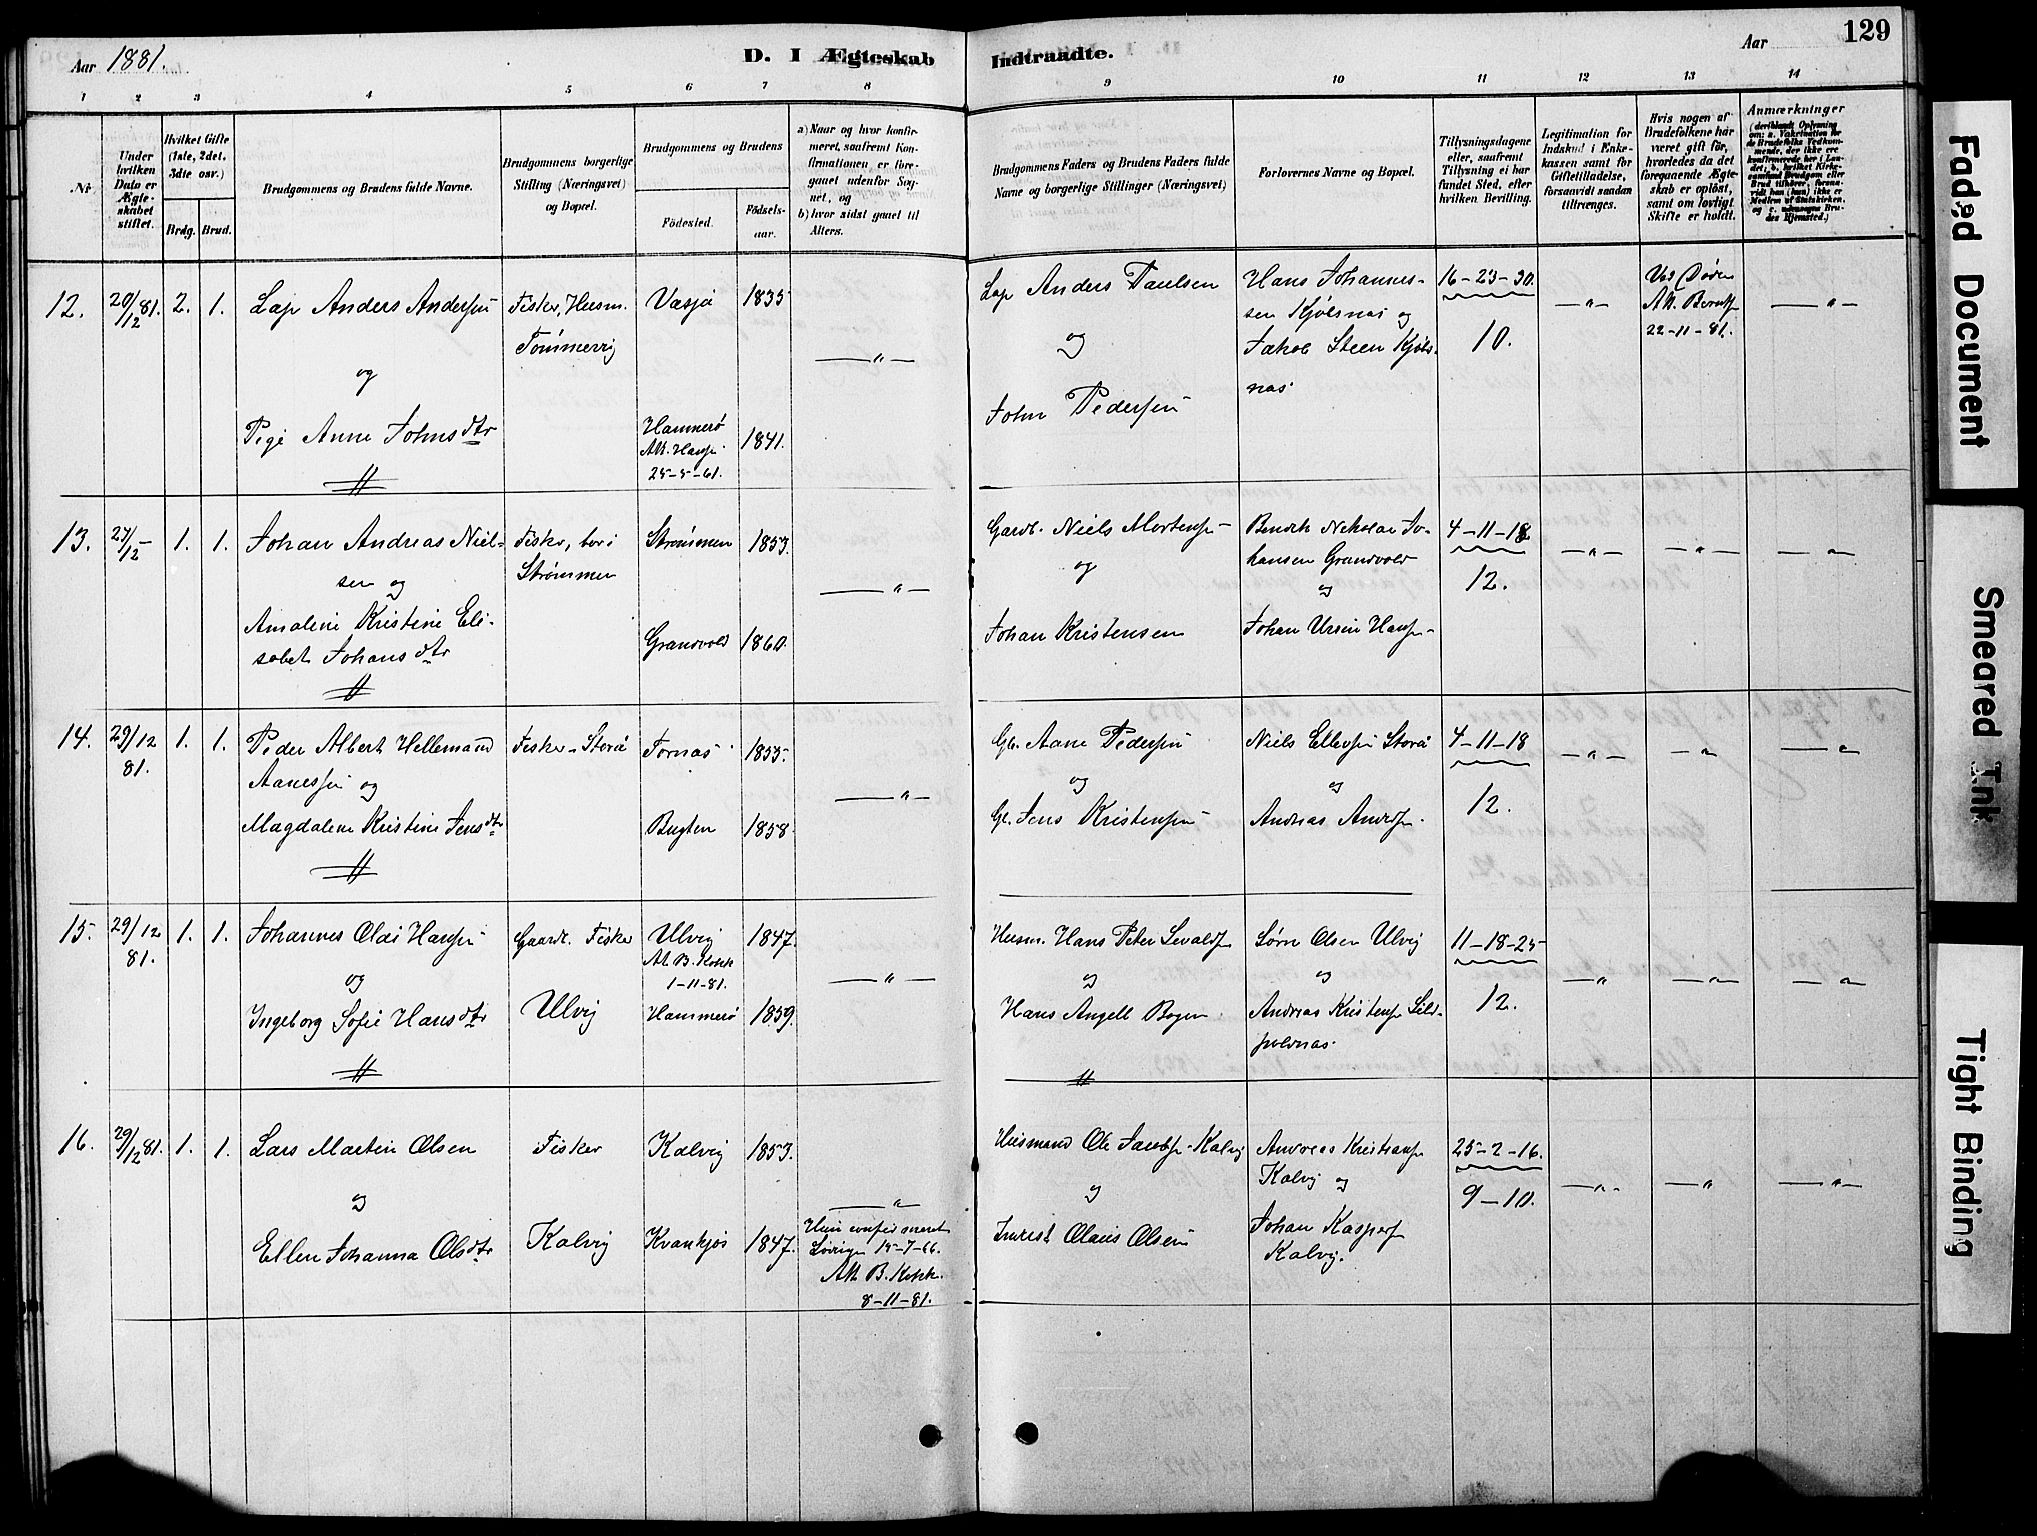 129
Aar 1881.
D. I Ægteskab Indtraadte.
Aar
1 2 3 4 5 6 7 8 9 10 11 12 13 14
Nr.
Under
hvilken
Dato er
Ægte-
skabet
stiftet.
Hvilket Gifte
(1ste, 2det,
3die osv.)
Brdg. Brud.
Brudgommens og Brudens fulde Navne.
Brudgommens borgerlige
Stilling (Næringsvei)
og Bopæl.
Brudgommens og Brudens
Fødested.
Fødsels-
aar.
a) Naar og hvor konfir-
meret, saafremt Kon-
firmationen er fore-
gaaet udenfor Sog-
net, og
b) hvor sidst gaaet til
Alters.
Brudgommens Faders og Brudens Faders fulde
Navne og borgerlige Stillinger (Næringsvei)
Forlovernes Navne og Bopæl.
Tillysningsdagene
eller, saafremt
Tillysning ei har
fundet Sted, efter
hvilken Bevilling.
Legitimation for
Indskud i Enke-
kassen samt for
Giftetilladelse,
forsaavidt saadan
tiltrænges.
Hvis nogen af
Brudefolkene har
været gift før,
hvorledes da det
foregaaende Ægte-
skab er opløst,
samt om lovligt
Skifte er holdt.
Anmærkninger
(deriblandt Oplysning
om: a. Vakcination for
de Brudefolks Vedkom-
mende, der ikke ere
konfirmerede her i Lan-
det, b. hvilket Kirke-
samfund Brudgom eller
Brud tilhører, forsaa-
vidt han (hun) ikke er
Medlem af Statskirken,
og c. udensogns Bru-
des Hjemsted.)
12. 20/12 81. 2. 1.
Lap Anders Andersen
og
Pige Anne Johnsdtr
Fisker, Husm.
Tømmervig
Vasja 1835
Hammerø
Att. Hansen
25-5-61.
1841.
— " —
Lap Anders Paulsen
og
John Pedersen
Hans Johannes-
sen Kjølsnas og
Jakob Steen Kjøls-
nas
16-23-30.
10.
— " —
Ved Døden
Att. Berntsen
22-11-81.
— " —
13. 27/12 — 1. 1.
Johan Andreas Niel-
sen og
Amalene Kristine Eli-
sabet Johansdtr
Fisker, bor i
Strømmen
Strømmen 1853.
Grandvold 1860.
— " —
Gaardb. Niels Mortensen
og
Johan Kristensen
Bendik Nikolai Jo-
hansen Grandvold
og
Johan Ursin Hansen
4-11-18
12.
— " — — " — — " —
14. 29/12 81. 1. 1.
Peder Albert Hellemand
Aanesen og
Magdalene Kristine Jensdtr
Fisker - Storå
Tornas 1855.
Bugten 1858.
— " —
Gb. Aane Pedersen
og
Gb. Jens Kristensen
Niels Ellevsen Storå
og
Andreas Andersen.
4-11-18
12.
— " — — " — — " —
15. 29/12 81. 1. 1.
Johannes Olai Hansen
og
Ingeborg Sofie Hansdtr
Gaardb. Fisker
Ulvig
Ulvig
Att. B. Kokk
1-11-81.
1847.
Hammerø 1859.
— " —
Husm. Hans Peter Sevaldsen
og
Hans Angell Bogen
Sørn Olsen Ulvig
og
Andreas Kristensen Sild-
polnas.
11-18-25
12.
— " — — " — — " —
16. 29/12 81. 1. 1.
Lars Martin Olsen
og
Ellen Johanna Olsdtr
Fisker
Kalvig
Kalvig 1853.
Kvankjos 1847.
— " —
Hun confirmeret
15-7-66.
Att. B. Kokk.
8-11-81.
Husmand Ole Jacobsen - Kalvig
og
Inderst Olaus Olsen
Andreas Kristiansen
Kalvig og
Johan Kaspers.
Kalvig.
25-2-16.
9-10.
— " — — " — — " —
Faded Document
Smeared Ink
Tight Binding